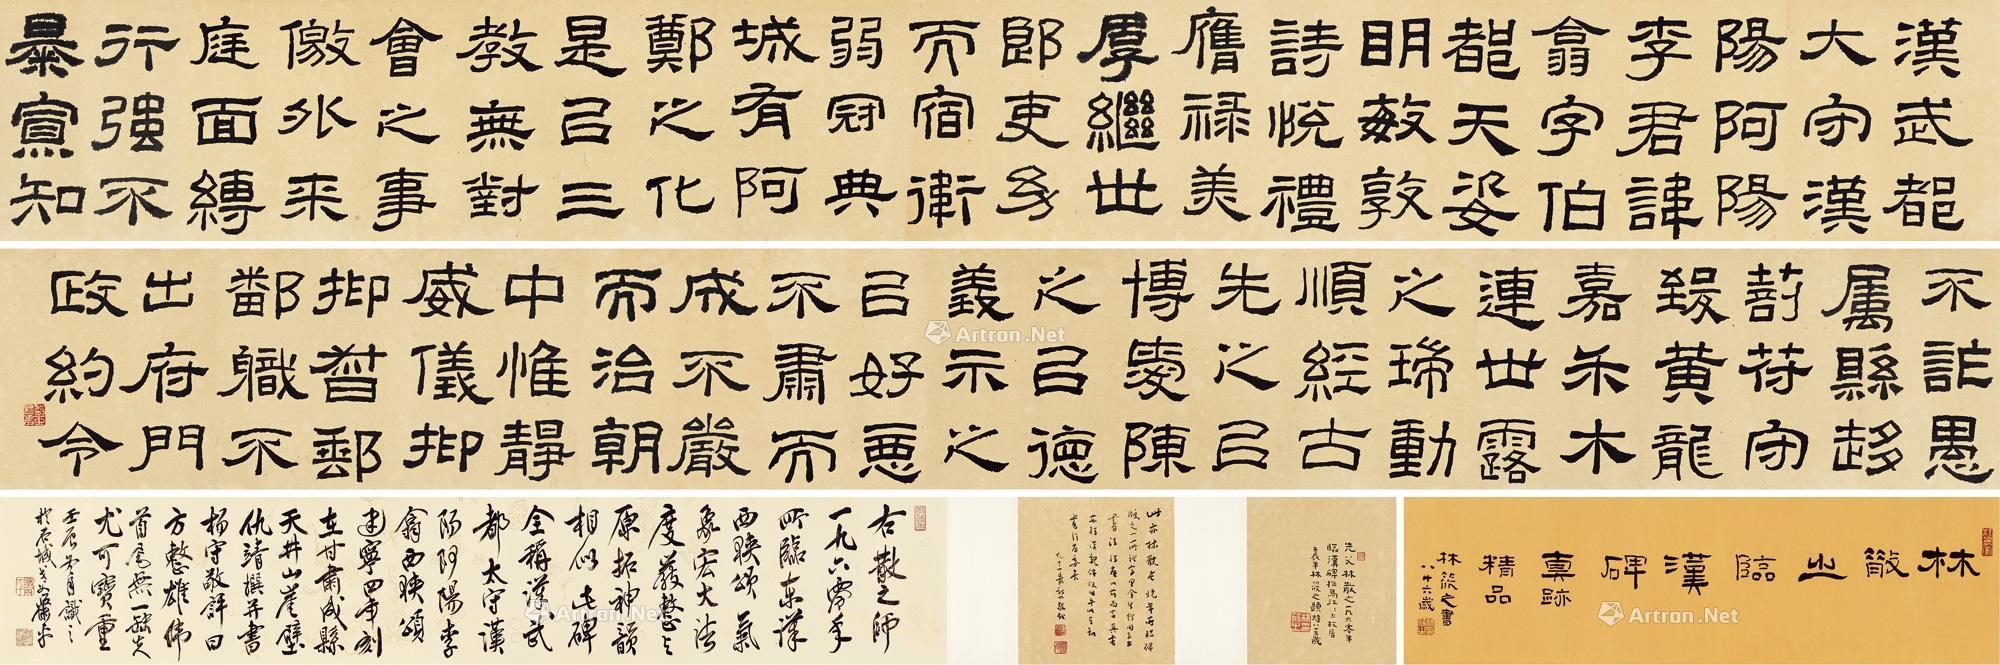 漢武都
大守漢
陽阿陽
李君諱
翕字伯
都天姿
明敏敦
詩悅禮
膺祿美
厚繼世
郎吏幼
而宿衛
弱冠典
城有阿
鄭之化
是㠯三
教無對
會之事
儌外来
庭面縛
行強不
暴寡知
不詐愚
屬縣趍
苻守
致黃龍
嘉禾木
連世露
之瑞動
順經古
先之㠯
博愛陳
之㠯德
義示之
㠯好惡
不肅而
成不嚴
而治朝
中惟靜
威儀抑
抑督郵
部職不
出府門
政約令
林散之臨漢碑真跡精品
林筱之書
八十六歲
先父林散之一九六零年
臨漢碑
林筱之題時八五歲
右散之師
一九六零年
所臨東漢
西狹頌氣
象宏大法
度嚴整
原拓神韻
相似此碑
全稱漢武
都太守漢
陽阿陽李
翕西狹頌
建寧四年刻
在甘肅成縣
天井山崖壁
仇靖撰并書
楊守敬評曰
方整雄偉
首尾無一缺失
尤可寶重
壬辰 月識之
於石城 蕭平
Artron.Net